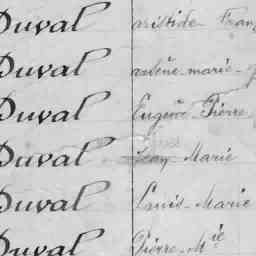 Duval aristide Franç
Duval arsène-marie-
Duval Eugène-Pierre
Duval Jean Marie
Duval Louis-Marie
Duval Pierre-Mie